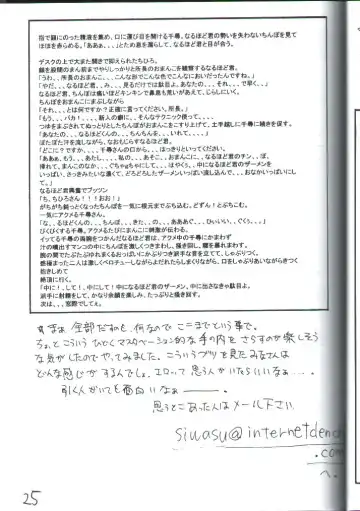 指で顔にのった精液を集め、口に運び目を開ける千尋、なるほど君の勢いを失わないちんぽを見て
ほほを赤らめる。「あああ、、、」とたの息を漏らして、なるほど君と目が合う。
デスクの上で大また開きで抑えられたちひろ。
顔を股間のまん前までやりしっかりと所長のおまんこを観察するなるほど君。
「うわ、所長のおまんこ、、、こんな形でこんな色でこんなにおいだったんですね。」
「やだ、、なるほど君、、み、、見るだけでは駄目よ、あなたの、、、それ、、、で早く、、」
なるほど君、ちんぽは痛いほどギンギンで鼻息も荒いがあえて、じらしにいく。
ちんぽをおまんこにまぶしながら
「それ、、、とは何ですか?正確に言ってください。所長。」
「もう、、、バカ!、、、新人の癖に、、、そんなテクニック使って、、、」
つゆをまぶされてぬっとりとしたちんぽがおまんこをこすり上げて、上手越しに千尋に続きを促す。
「あなたの、、、なるほどくんの、、ちんちんを、、いれて、、、、」
ぼたぼた汗を流しながら、なおもじらすなるほど君。
「どこに?ですか、、、、千尋さんの口から、、、はっきりといってください。
「あああ、もう、、あたし、、、私の、、、あそこ、、おまんこに、、なるほど君のチン、、ぽ、
挿れて、まんこのなか、、、ぐちゃぐちゃにして、、、はやく、、、中になるほど君のザーメンを
いっぱい、さっきみたいな濃くて、どろどろしたザーメンいっぱい流し込んで、、、おなかいっぱいにし
て。」
なるほど君興奮でプッツン
「ち、ちひろさん!!!おお!」
がちがち鈍っとくなったちんぽを一気に根元までぶち込む。どずん!とぶちこむ。
一気にアクメる千尋さん。
「な、、るほどくんの、、、ちんぽ、、、きた、、の、、ああああぐ、、ひいいい、、ぐく、、、」
びくびくする千尋。アクメるたびにまんこに刺激が伝わる。
イッてる千尋さんの両腕をつかんだなるほど君は、アクメ中の千尋にかまわず
汁の噴出すマンコの中にちんぽを激しくつきまわし、掻き回し、腰を暴れまわす。
腕の間でたぷたぷゆれまくるおっぱいにかぶりつき派手な音を立てて、しゃぶりつく。
感極まった二人は激しくベロチューしながらよだれたらしまくりながら、口をしゃぶりあいながらきつく
抱きしめて
絶頂に行く。
「中に!、して!、中にして!中になるほど君のザーメン、中に出さなきゃ駄目よ。
派手に射精をして、かなり余韻を楽しみ、たっぷりと掻き回す。
次は、、、窓際でしぇぇ。
すまぁ 全部だすのも何なので ここまでという事で。
ちょっとこういうひどくマスタベーション的な手の内をさらすのが楽しそう
な気がしたのでやってみました。こういうブツを見たみなさんは
どんな感じがするんでしょ。エロいって思う人がいたらいいなぁ‐‐‐‐。
引く人がいても面白いなぁー‐‐‐。
思うとこあった人はメール下さい
siwasu@internetden
.com
へ。
25